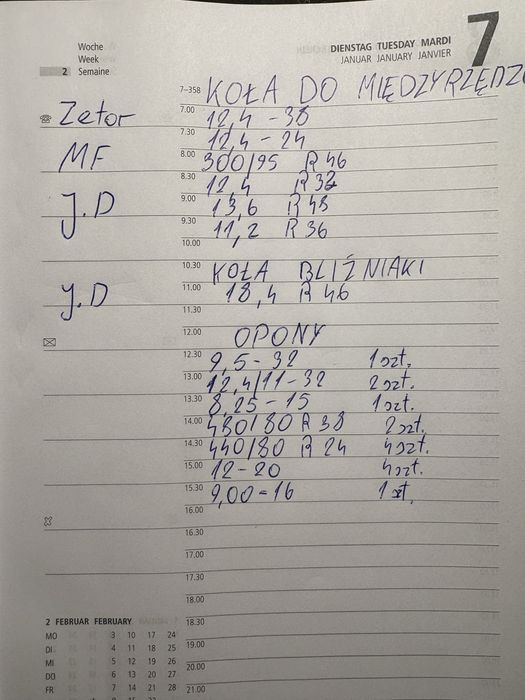 Woche
Week
2 Semaine
DIENSTAG TUESDAY MARDI
JANUAR JANUARY JANVIER
7
7–358 KOŁA DO MIĘDZYRZĘDZ
Zetor 7.00 12,4 - 38
7.30 12,4 - 24
MF 8.00 300/95 R 46
8.30 12,4 R 32
J.D 9.00 13,6 R 48
9.30 11,2 R 36
10.00
10.30 KOŁA BLIŹNIAKI
J.D 11.00 18,4 R 46
11.30
12.00 OPONY
12.30 9,5 - 32 1 szt.
13.00 12,4/11 - 32 2 szt.
13.30 8,25 - 15 1 szt.
14.00 480/80 R 38 2 szt.
14.30 440/80 R 24 4 szt.
15.00 12 - 20 4 szt.
15.30 9,00 - 16 1 szt.
16.00
16.30
17.00
17.30
18.00
18.30
19.00
20.00
21.00
2 FEBRUAR FEBRUARY
MO 3 10 17 24
DI 4 11 18 25
MI 5 12 19 26
DO 6 13 20 27
FR 7 14 21 28